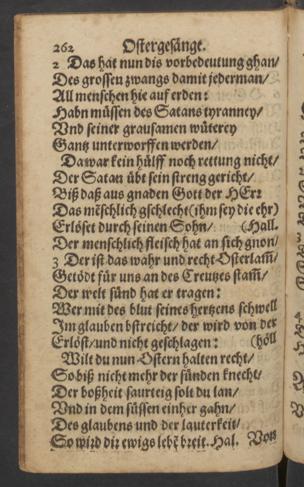 262 Ostergesänge.
2 Das hat nun dis vorbedeutung ghan/
Des grossen zwangs damit jederman/
All menschen hie auf erden:
Habn müssen des Satans tyranney/
Vnd seiner grausamen wüterey
Gantz unterworffen werden/
Da war kein hülff noch rettung nicht/
Der Satan übt sein streng gericht/
Biß daß aus gnaden Gott der HErz
Das mẽschlich gschlecht (ihm sey die ehr)
Erlöset durch seinen Sohn/ (Hall.
Der menschlich fleisch hat an sich gnon/
3 Der ist das wahr und recht Osterlam̃/
Getödt für uns an des Creutzes stam̃/
Der welt sünd hat er tragen:
Wer mit des blut seines hertzens schwell
Im glauben bstreicht/ der wird von der
Erlöst/ und nicht geschlagen: (höll
Wilt du nun Ostern halten recht/
So biß nicht mehr der sünden knecht/
Der boßheit saurteig solt du lan/
Vnd in dem süssen einher gahn/
Des glaubens und der lauterkeit/
So wird dir ewigs lebẽ breit. Hal. Vors